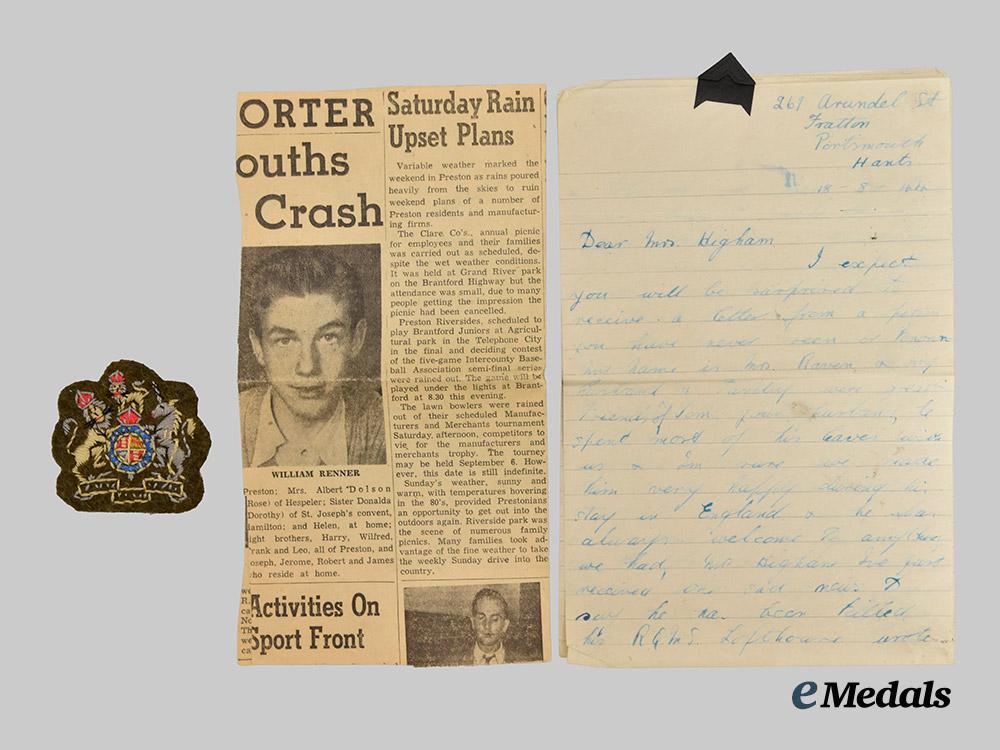 ORTER
ouths
Crash
WILLIAM RENNER
Preston; Mrs. Albert Dolson
(Rose) of Hespeler; Sister Donalda
(Dorothy) of St. Joseph's convent,
Hamilton; and Helen, at home;
ight brothers, Harry, Wilfred,
rank and Leo, all of Preston, and
oseph, Jerome, Robert and James
who reside at home.
Activities On
Sport Front
Saturday Rain
Upset Plans
Variable weather marked the
weekend in Preston as rains poured
heavily from the skies to ruin
weekend plans of a number of
Preston residents and manufactur-
ing firms.
The Clare Co's., annual picnic
for employees and their families
was carried out as scheduled, de-
spite the wet weather conditions.
It was held at Grand River park
on the Brantford Highway but the
attendance was small, due to many
people getting the impression the
picnic had been cancelled.
Preston Riversides, scheduled to
play Brantford Juniors at Agricul-
tural park in the Telephone City
in the final and deciding contest
of the five-game Intercounty Base-
ball Association semi-final series
were rained out. The game will be
played under the lights at Brant-
ford at 8.30 this evening.
The lawn bowlers were rained
out of their scheduled Manufac-
turers and Merchants tournament
Saturday, afternoon, competitors to
vie for the manufacturers and
merchants trophy. The tourney
may be held September 6. How-
ever, this date is still indefinite.
Sunday's weather, sunny and
warm, with temperatures hovering
in the 80's, provided Prestonians
an opportunity to get out into the
outdoors again. Riverside park was
the scene of numerous family
picnics. Many families took ad-
vantage of the fine weather to take
the weekly Sunday drive into the
country.
269 Arundel St
Fratton
Portsmouth
Hants
18 - 8 -
Dear Mrs. Higham
I expect
you will be surprised to
receive a letter from a person
you have never seen or known
my name is Mrs. Raven, & my
Husband & Family were great
Friends of Tom your husband, he
spent most of his leaves with
us & I'm sure we made
him very happy during his
stay in England & he was
always welcome to any
we had, Mrs Higham I've just
received the sad news &
say he has been killed
his R.Q.M.S. Lofthouse wrote
eMedals